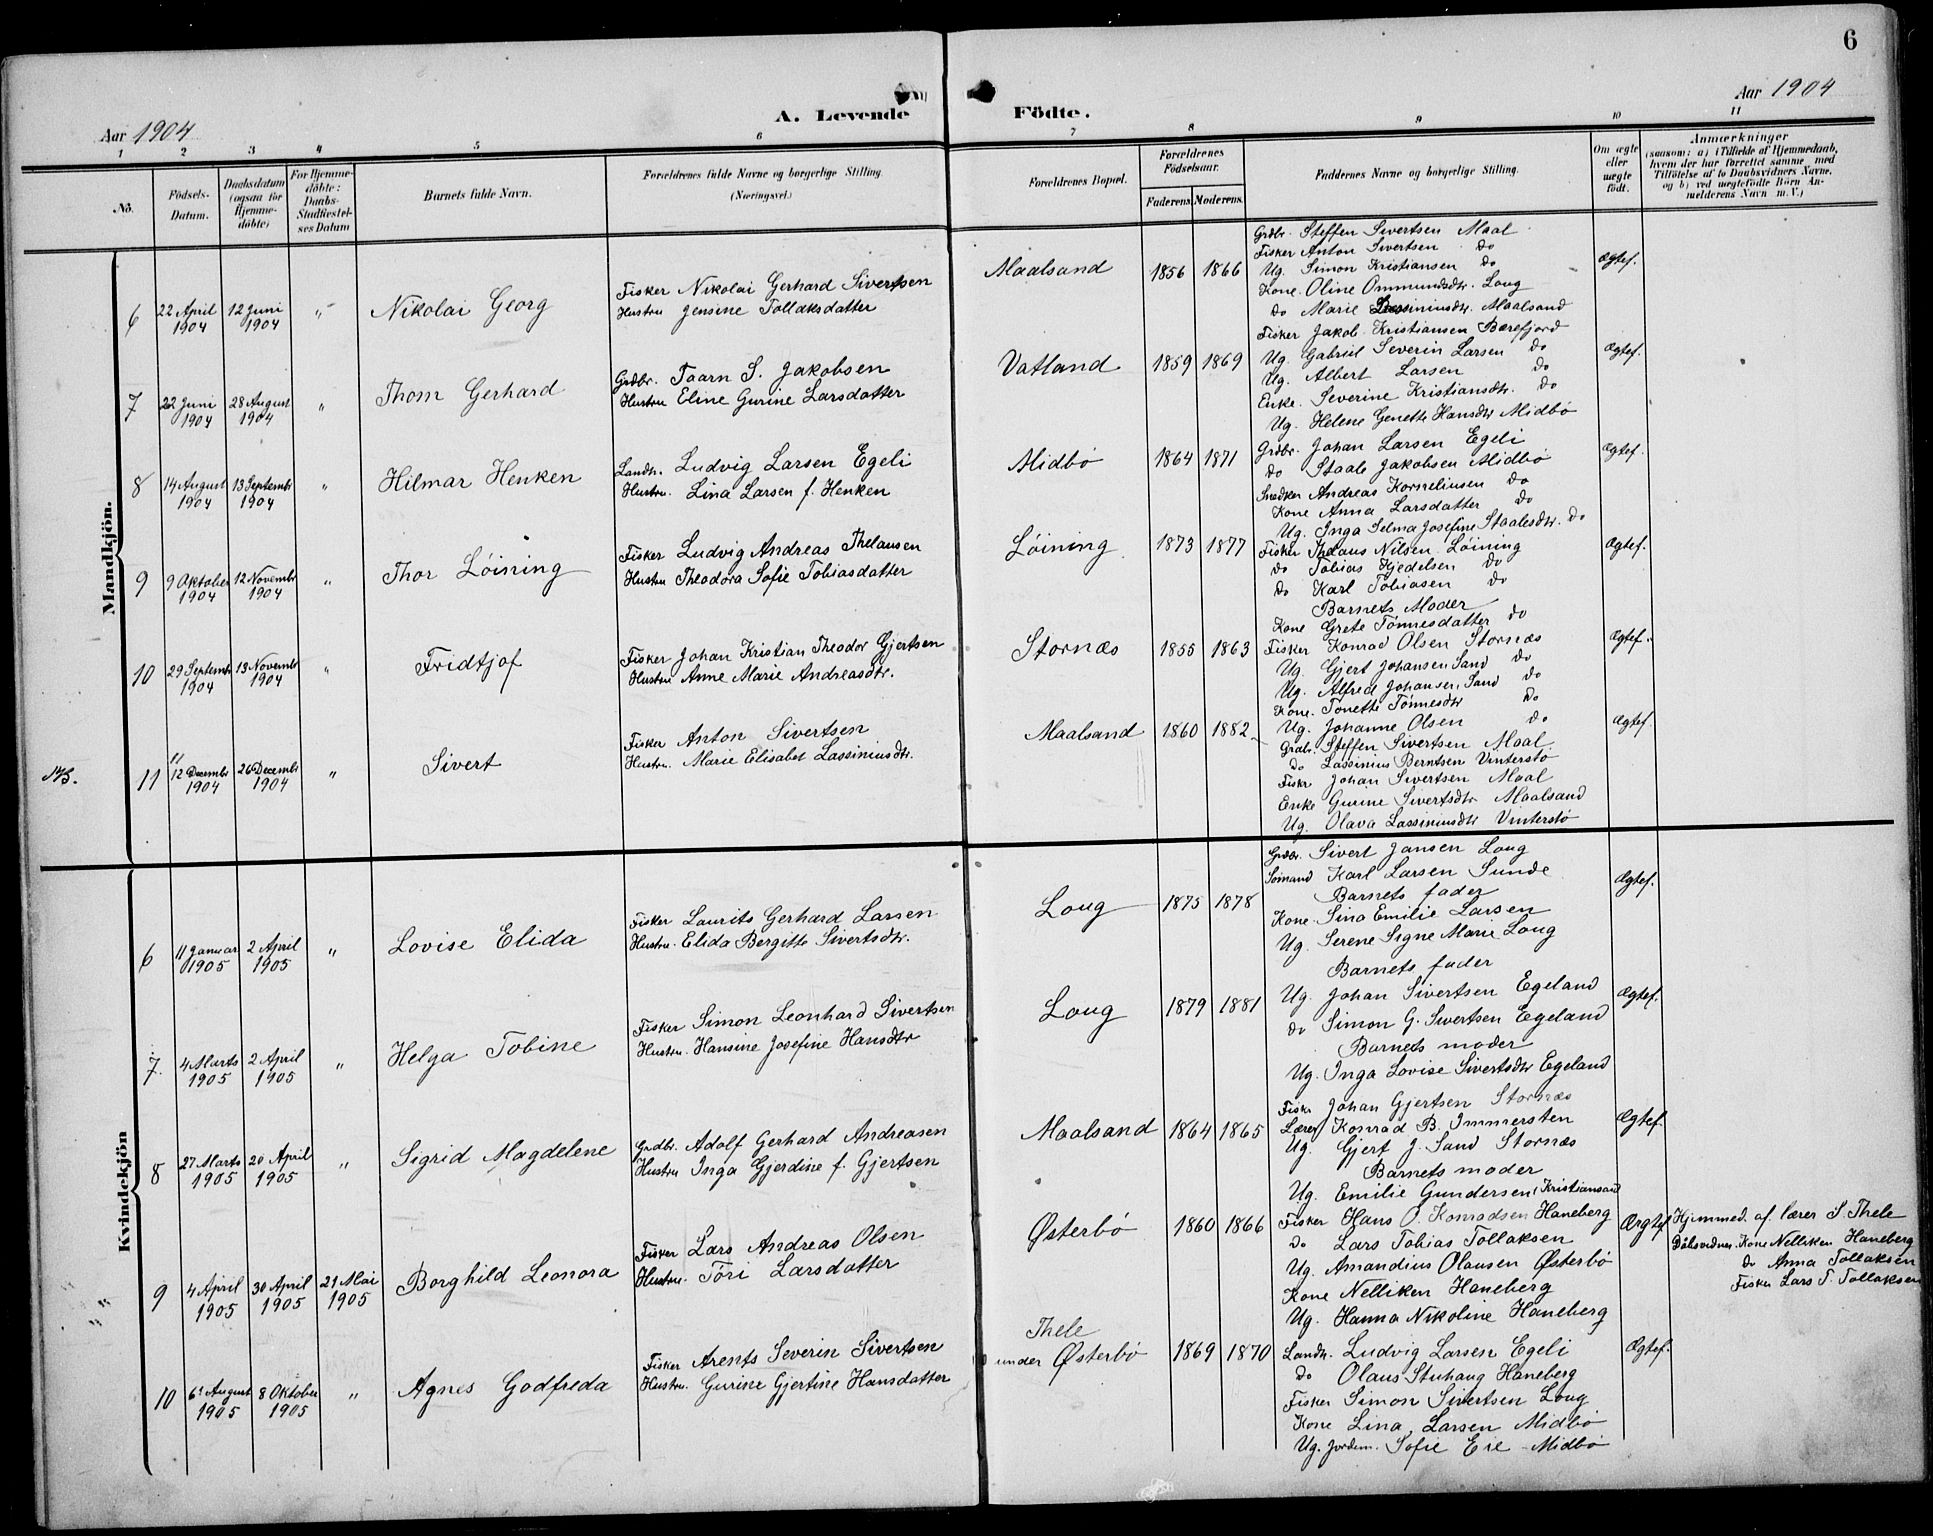 6
Aar 1904
A. Levende Födte.
Aar 1904
1 2 3 4 5 6 7 8 9 10 11
No.
Födsels-Datum.
Daabsdatum (ogsaa for Hjemme-döbte)
For Hjemme-döbte: Daabs-Stadfæstel-ses Datum
Barnets fulde Navn.
Forældrenes fulde Navne og borgerlige Stilling. (Næringsvei.)
Forældrenes Bopæl.
Forældrenes Födselsaar. Faderens Moderens.
Faddernes Navne og borgerlige Stilling.
Om ægte eller uægte födt.
Anmærkninger (saasom: a) i Tilfælde af Hjemmedaab, hvem der har forrettet samme, med Tilföielse af to Daabsvidners Navne, og b) ved uægtefödte Börn An-melderens Navn m. V.)
Mandkjön.
6 22 April 1904 12 Juni 1904 " Nikolai Georg
Fisker Nikolai Gerhard Sivertsen
Hustru Jensine Tollaksdatter
Maalsand 1856 1866 Ægtef.
Grdbr. Steffen Sivertsen Maal
Fisker Anton Sivertsen do
Ug. Simon Kristiansen do
Kone Oline Ommundsdtr. Loug
do Marie Lassiniusdtr. Maalsand
7 22 Juni 1904 28 August 1904 " Thom Gerhard
Grdbr. Taarn S. Jakobsen
Hustru Eline Gurine Larsdatter
Vatland 1859 1869 Ægtef.
Fisker Jakob Kristiansen Bærefjord
Ug. Gabriel Severin Larsen do
Ug. Albert Larsen do
Enke. Severine Kristiansdtr. do
Ug. Helene Genette Hansdtr Midbö
8 14 August 1904 13 Septembr 1904 " Hilmar Henken
Landh. Ludvig Larsen Egeli
Hustru. Lina Larsen f. Henken
Midbö 1864 1871 Ægtef.
Grdbr. Johan Larsen Egeli
do Staale Jakobsen Midbö
Snedker Andreas Korneliusen do
Kone Anna Larsdatter do
Ug. Inga Selma Josefine Staalesdtr. do
9 9 Oktober 1904 12 Novembr 1904 " Thor Löining
Fisker Ludvig Andreas Thelausen
Hustru Theodora Sofie Tobiasdatter
Löining 1873 1877 Ægtef.
Fisker Thelaus Nilsen Löining
do Tobias Kjedelsen do
do Karl Tobiasen do
Barnets Moder
Kone Grete Tönnesdatter do
10 29 Septembr 1904 13 Novembr 1904 " Fridtjof
Fisker Johan Kristian Theodor Gjertsen
Hustru Anne Marie Andreasdtr.
Stornæs 1855 1863 Ægtef.
Fisker Konrad Olsen Stornæs
Ug. Gjert Johansen Sand do
Ug. Alfred Johansen Sand do
Kone. Tonette Tönnesdtr do
Ug. Johanne Olsen do
NB. 11 12 Decembr 1904 26 Decembr 1904 " Sivert
Fisker Anton Sivertsen
Hustru. Marie Elisabet Lassiniusdtr.
Maalsand 1860 1882 Ægtef.
Grdbr. Steffen Sivertsen Maal
do Lassinius Berntsen Vinterstö
Fiskr Johan Sivertsen Maal
Enke Gurine Sivertsdtr Maalsand
Ug. Olava Lassiniusdtr Vinterstö
Kvindekjön
6 11 Januar 1905 2 April 1905 " Lovise Elida
Fisker Laurits Gerhard Larsen
Hustru. Elida Bergitte Sivertsdtr.
Loug 1875 1878 Ægtef.
Grdbr. Sivert Jansen Loug
Sömand Karl Larsen Sunde
Barnets fader
Kone Sina Emilie Larsen
Ug. Serene Signe Marie Loug
7. 4 Marts 1905 2 April 1905 " Helga Tobine
Fisker Simon Leonhard Sivertsen
Hustru. Hansine Josefine Hansdtr
Loug 1879 1881 Ægtef.
Barnets fader
Ug. Johan Sivertsen Egeland
do Simon G. Sivertsen Egeland
Barnets moder
Ug. Inga Lovise Sivertsdtr Egeland
8 27 Marts 1905 20 April 1905 " Sigrid Magdelene
Grdbr. Adolf Gerhard Andreasen
Hustru Inga Gjerdine f. Gjertsen
Maalsand 1864 1865 Ægtef.
Fiskr Johan Gjertsen Stornæs
Lærer Konrad B. Immersten
Ug. Gjert J. Sand Stornæs
Barnets moder
Ug. Emilie Gundersen, Kristiansand
9 4 April 1905 30 April 1905 21 Mai 1905 Borghild Leonora
Fisker Lars Andreas Olsen
Hustru. Töri Larsdatter
Østerbö 1860 1866 Ægtef
Fisker Hans O. Konradsen Haneberg
do Lars Tobias Tollaksen
Ug. Amandius Olausen Østerbö
Kone Nelliken Haneberg
Ug. Hanna Nikoline Haneberg
Hjemmed. af. lærer S. Thele
Dåbsvidner. Kone Nelliken Haneberg
do Anna Tollaksen
Fisker Lars T. Tollaksen
10 6 August 1905 8 Oktober 1905 " Agnes Godfreda
Fisker Arents Severin Sivertsen
Hustru. Gurine Gjertine Hansdatter
Thele under Østerbö 1869 1870 Ægtef.
Landh. Ludvig Larsen Egeli
do Olaus Stuhaug Haneberg
Fisker Simon Sivertsen Loug
Kone Lina Larsen Midbö
Ug. Jordm. Sofie Eie Midbö